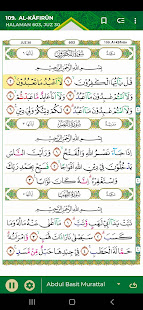 109. AL-KÂFIRÛN
HALAMAN 603, JUZ 30
JUZ 30
603
109. Al-Kâfirûn
سُورَةُ الْكَافِرُونَ
بِسْمِ اللَّهِ الرَّحْمَٰنِ الرَّحِيمِ
قُلْ يَا أَيُّهَا الْكَافِرُونَ ١ لَا أَعْبُدُ مَا تَعْبُدُونَ ٢
وَلَا أَنتُمْ عَابِدُونَ مَا أَعْبُدُ ٣ وَلَا أَنَا عَابِدٌ مَّا عَبَدتُّمْ ٤
وَلَا أَنتُمْ عَابِدُونَ مَا أَعْبُدُ ٥ لَكُمْ دِينُكُمْ وَلِيَ دِينِ ٦
سُورَةُ النَّصْرِ
بِسْمِ اللَّهِ الرَّحْمَٰنِ الرَّحِيمِ
إِذَا جَاءَ نَصْرُ اللَّهِ وَالْفَتْحُ ١ وَرَأَيْتَ النَّاسَ
يَدْخُلُونَ فِي دِينِ اللَّهِ أَفْوَاجًا ٢ فَسَبِّحْ بِحَمْدِ رَبِّكَ
وَاسْتَغْفِرْهُ إِنَّهُ كَانَ تَوَّابًا ٣
بِسْمِ اللَّهِ الرَّحْمَٰنِ الرَّحِيمِ
تَبَّتْ يَدَا أَبِي لَهَبٍ وَتَبَّ ١ مَا أَغْنَىٰ عَنْهُ مَالُهُ وَمَا
كَسَبَ ٢ سَيَصْلَىٰ نَارًا ذَاتَ لَهَبٍ ٣ وَامْرَأَتُهُ
حَمَّالَةَ الْحَطَبِ ٤ فِي جِيدِهَا حَبْلٌ مِّن مَّسَدٍ ٥
Abdul Basit Murattal